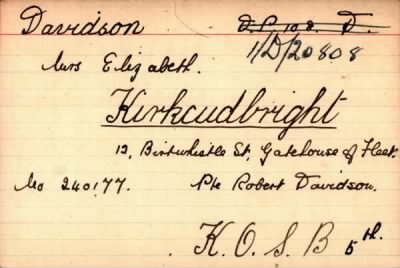 Davidson D.P. 108. D.
11/D/20808
Mrs Elizabeth.
Kirkcudbright
13, Birtwhistle St, Gatehouse of Fleet.
No 240177. Pte Robert Davidson.
K. O. S. B 5th.